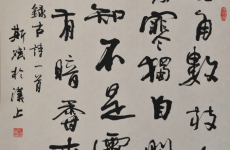 角數枝
寒獨自
知不是雪
有暗香
錄古詩一首
於漢上